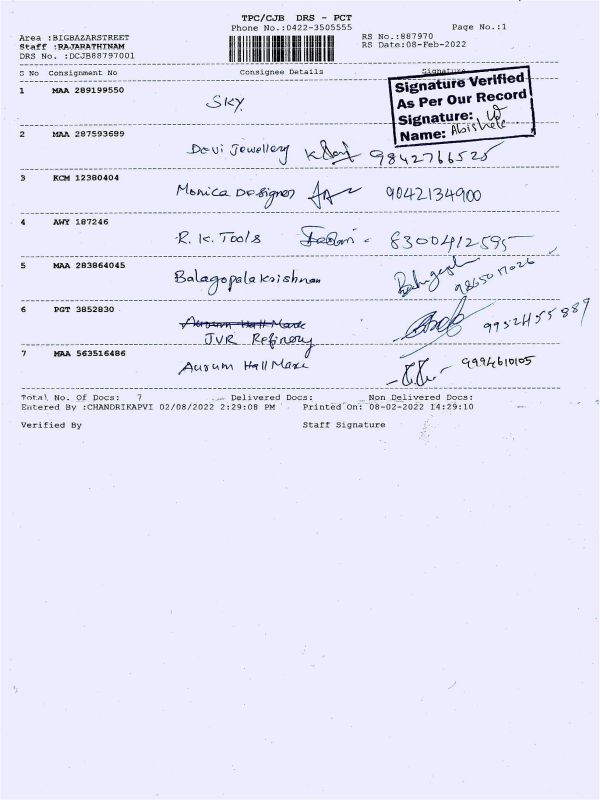 TPC/CJB DRS - PCT
Phone No.:0422-3505555 Page No.:1
Area :BIGBAZARSTREET RS No.:887970
Staff :RAJARATHINAM RS Date:08-Feb-2022
DRS No. :DCJB88797001
S No Consignment No Consignee Details Signature
Signature Verified
As Per Our Record
Signature:
Name: Abishek
1 MAA 289199550 SKY
2 MAA 287593689 Devi Jewellery 9842766525
3 KCM 12380404 Monica Designer 9042134900
4 AWY 187246 R.K. Tools 8300412595
5 MAA 283864045 Balagopalakrishnan
6 PGT 3852830 Aurum Hall Mark
JVR Refinery
7 MAA 563516486 Aurum Hall Mark 9994610105
Total No. Of Docs: 7 Delivered Docs: Non Delivered Docs:
Entered By :CHANDRIKAPVI 02/08/2022 2:29:08 PM Printed On: 08-02-2022 14:29:10
Verified By Staff Signature